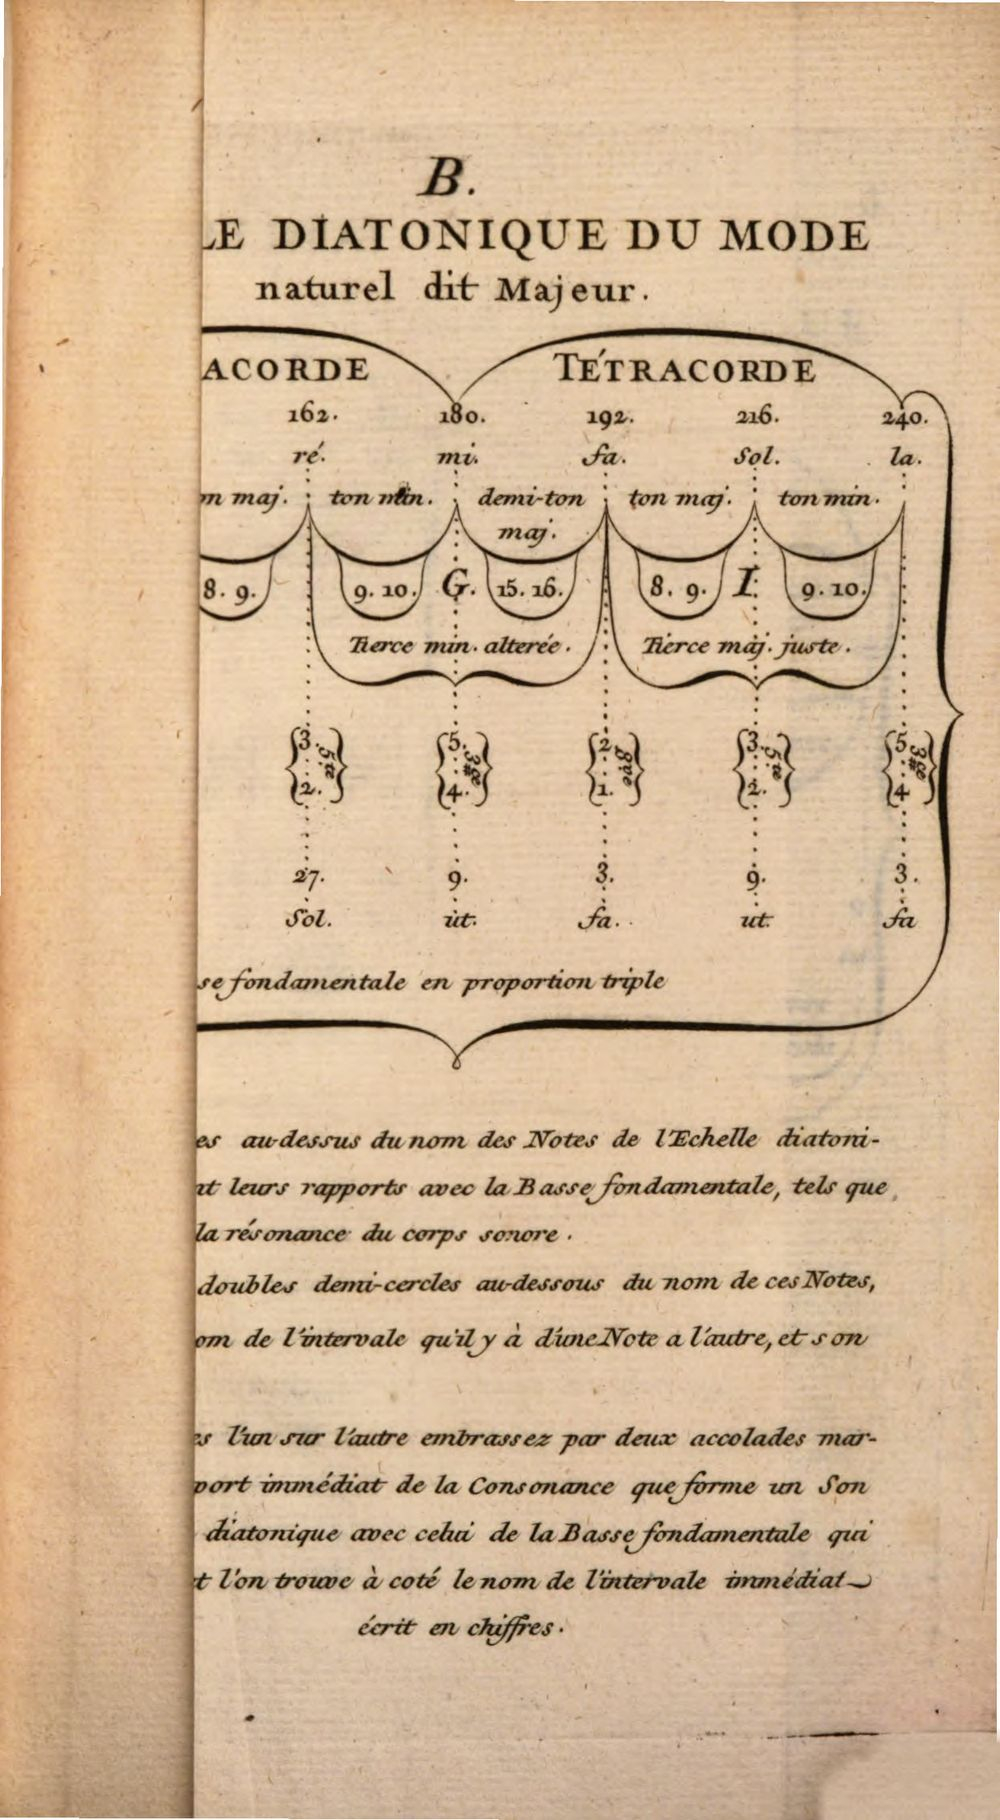 B.
LE DIATONIQUE DU MODE
naturel dit Majeur.
ACORDE TÉTRACORDE
162. 180. 192. 216. 240.
ré. mi. fa. Sol. la.
n maj. ton min. demi-ton maj. ton maj. ton min.
8. 9. 9. 10. G. 15. 16. 8. 9. I. 9. 10.
Tierce min. alterée. Tierce maj. juste.
3. 5. 2. 3. 5.
5te 3ce # 8ve 5te 3ce #
2. 4. 1. 2. 4
27. 9. 3. 9. 3.
Sol. ut. fa. ut. fa
se fondamentale en proportion triple
es au-dessus du nom des Notes de l'Echelle diatoni-
nt leurs rapports avec la Basse fondamentale, tels que
la résonance du corps sonore.
doubles demi-cercles au-dessous du nom de ces Notes,
om de l'intervale qu'il y à d'une Note a l'autre, et son
es l'un sur l'autre embrassez par deux accolades mar-
port immédiat de la Consonance que forme un Son
diatonique avec celui de la Basse fondamentale qui
t l'on trouve à coté le nom de l'intervale immédiat
écrit en chiffres.